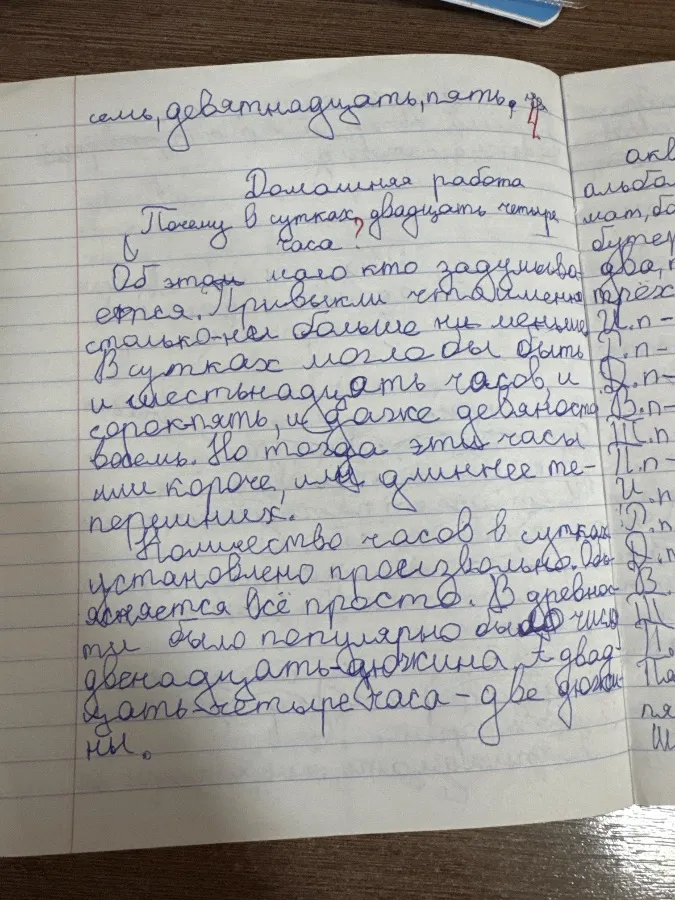 семь, девятнадцать, пять.
Домашняя работа
Почему в сутках двадцать четыре
часа?
Об этом мало кто задумыва-
ется. Привыкли что именно
столько-ни больше ни меньше
В сутках могло бы быть
и шестьнадцать часов, и
сорокпять, и даже девяносто
восемь. Но тогда эти часы
или короче, или длиннее те-
перешних.
Количество часов в сутках
установлено произвольно. Объ-
ясняется всё просто. В древнос-
ти было популярно было число
двенадцать-дюжина, а двад-
цать четыре часа - две дюжи-
ны.
акв
альбом
мат, ба
бутер
два, т
трёх
И.п -
Р.п -
Д.п -
В.п -
Т.п
П.п -
И.п
Р.п
Д.п
В.
Т.
П.
Па
пя
Ш